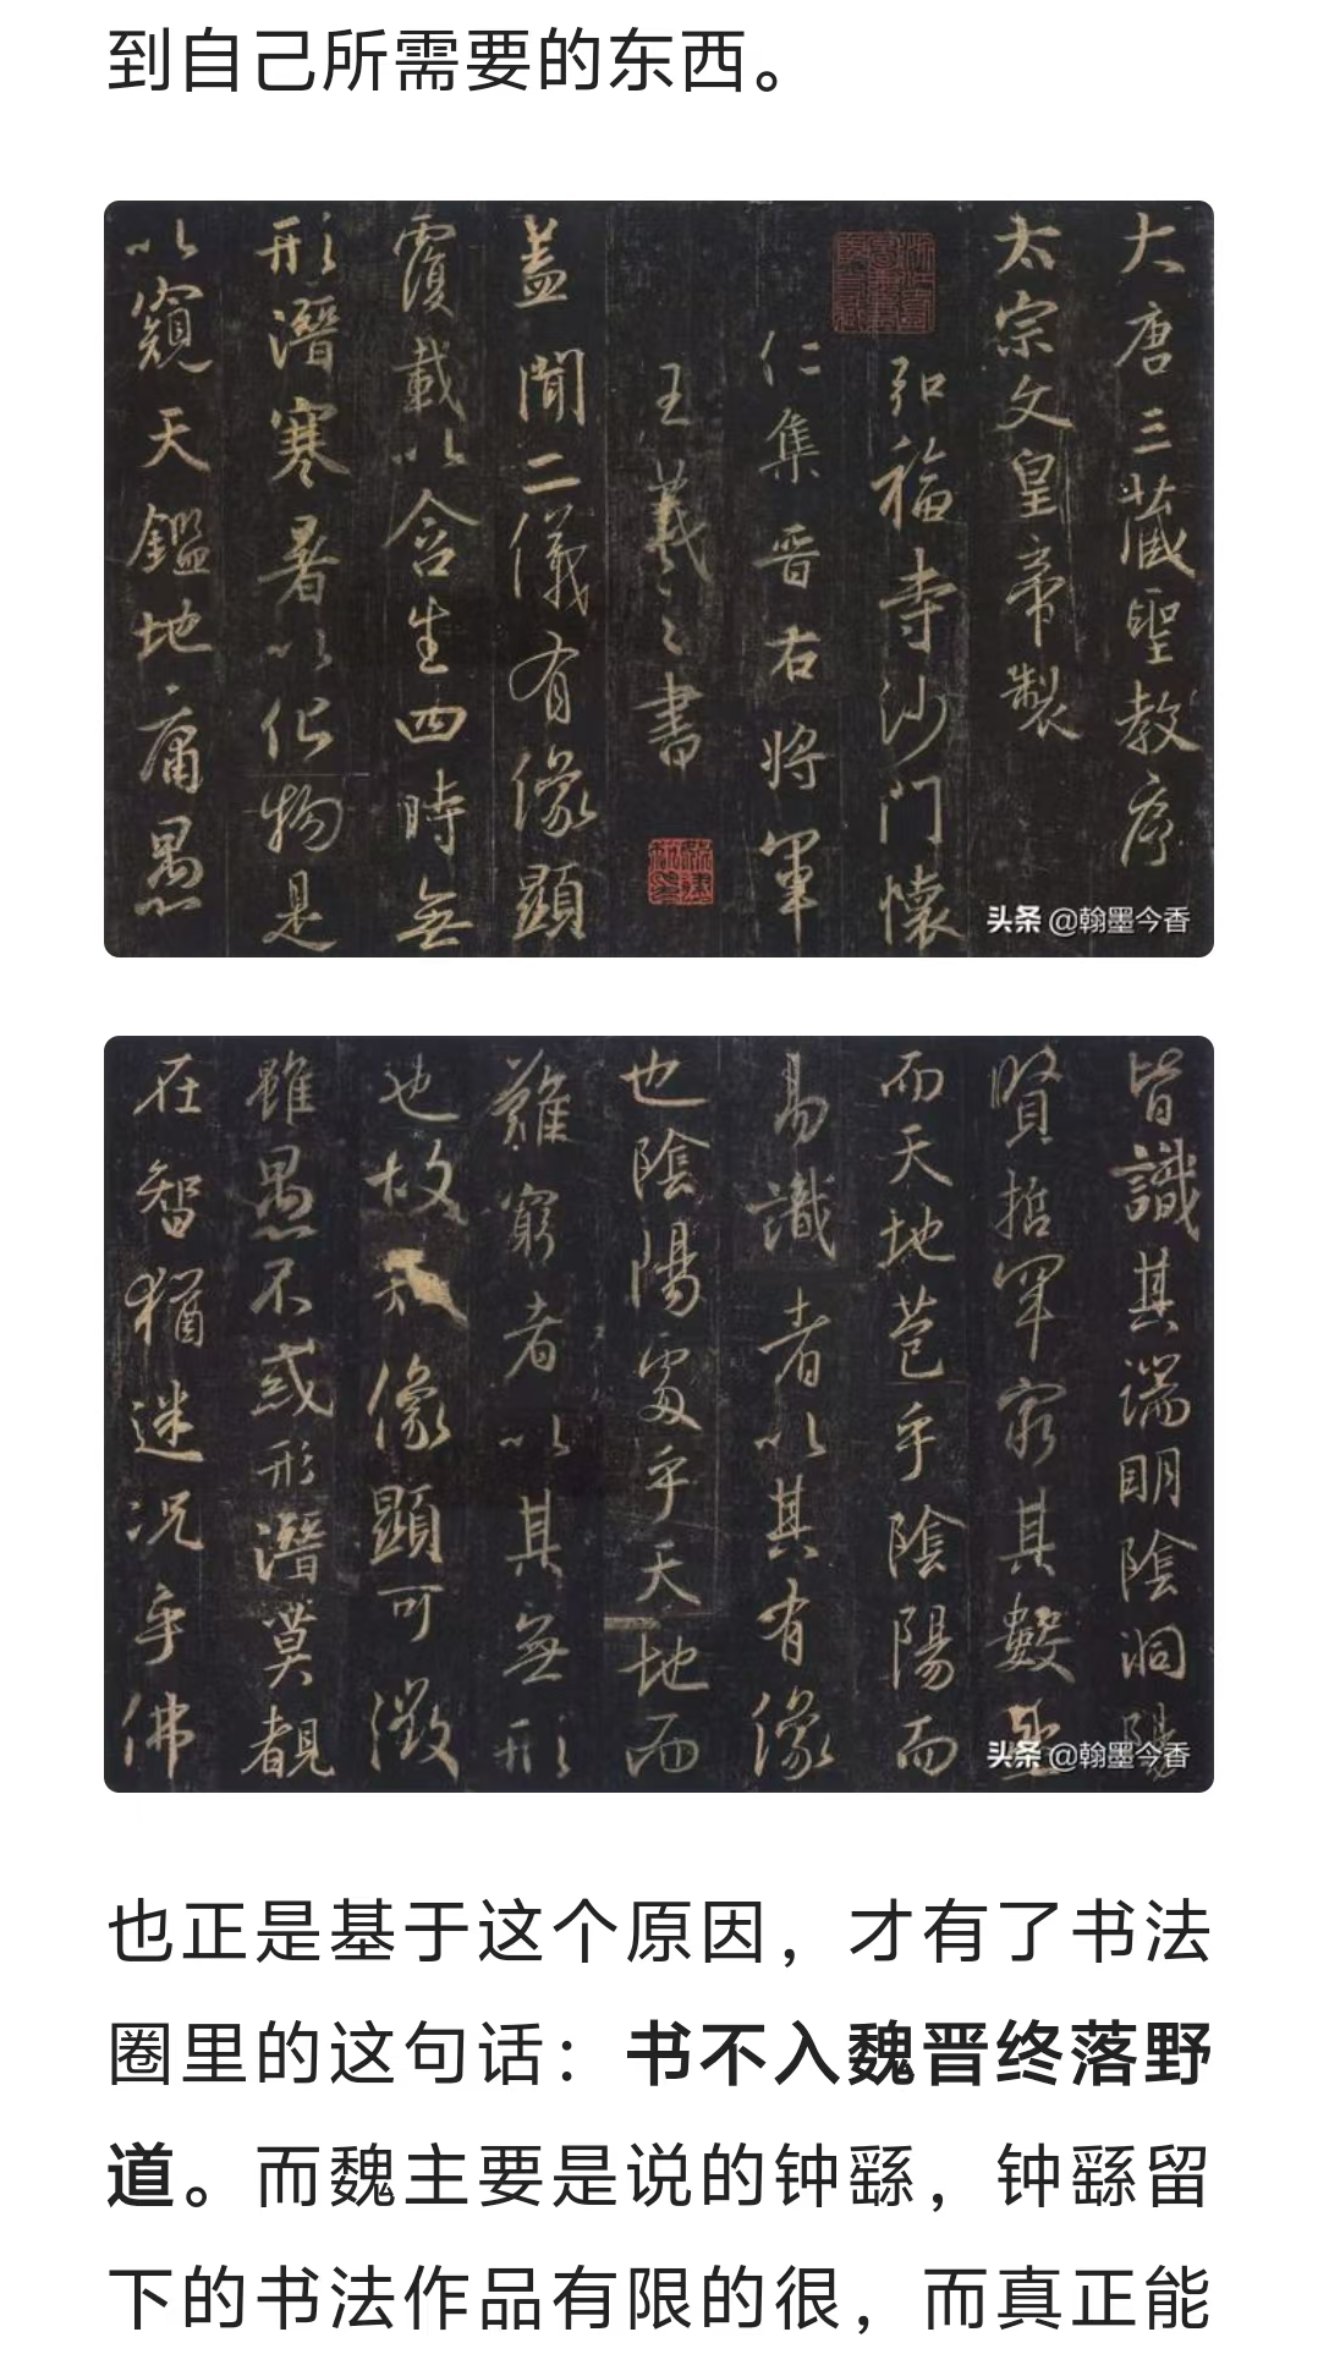 到自己所需要的东西。
大唐三藏聖教序
太宗文皇帝製
弘福寺沙門懷
仁集晉右將軍
王羲之書
蓋聞二儀有像顯
覆載以含生四時無
形潛寒暑以化物是
以窺天鑑地庸愚
头条 @翰墨今香
皆識其端明陰洞陽
賢哲罕窮其數
而天地苞乎陰陽而
易識者以其有像
也陰陽處乎天地而
難窮者以其無形
也故知像顯可徵
雖愚不惑形潛莫覩
在智猶迷況乎佛
头条 @翰墨今香
也正是基于这个原因，才有了书法
圈里的这句话：书不入魏晋终落野
道。而魏主要是说的钟繇，钟繇留
下的书法作品有限的很，而真正能